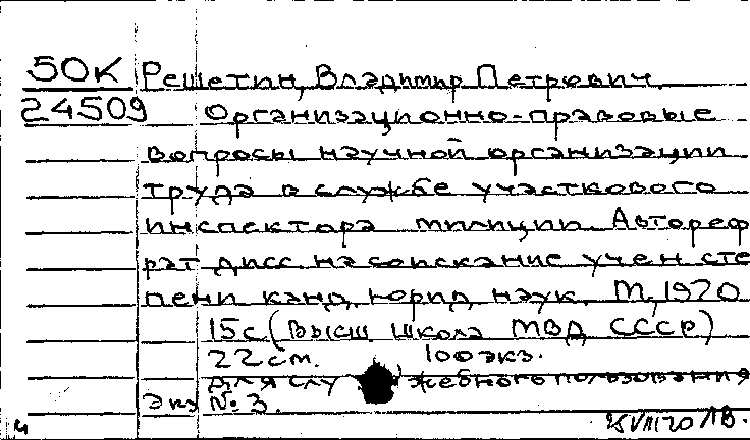 50К Решетин, Владимир Петрович.
24509 Организационно-правовые
вопросы научной организации
труда в службе участкового
инспектора милиции. Автореф
рат дисс. на соискание учен сте
пени канд. юрид. наук. М, 1970
15 с (Высш школа МВД СССР)
22 см. 100 экз.
Для служебного пользования
Экз № 3.
ч